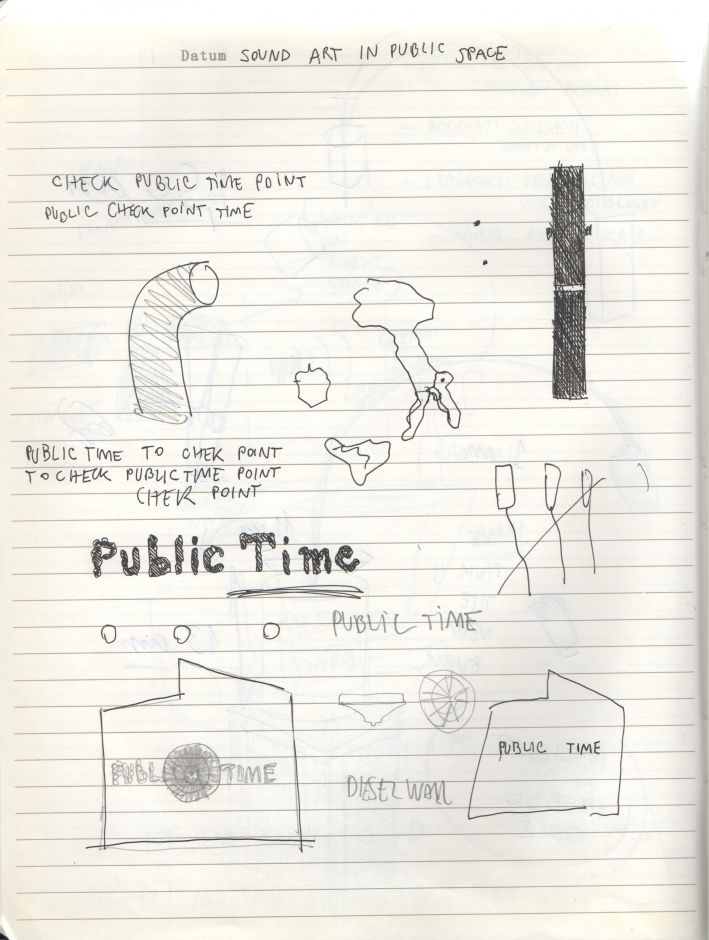 Datum SOUND ART IN PUBLIC SPACE
CHECK PUBLIC TIME POINT
PUBLIC CHECK POINT TIME
PUBLIC TIME TO CHEK POINT
TO CHECK PUBLIC TIME POINT
CHEK POINT
Public Time
PUBLIC TIME
PUBLIC TIME
PUBLIC TIME
DIESEL WALL